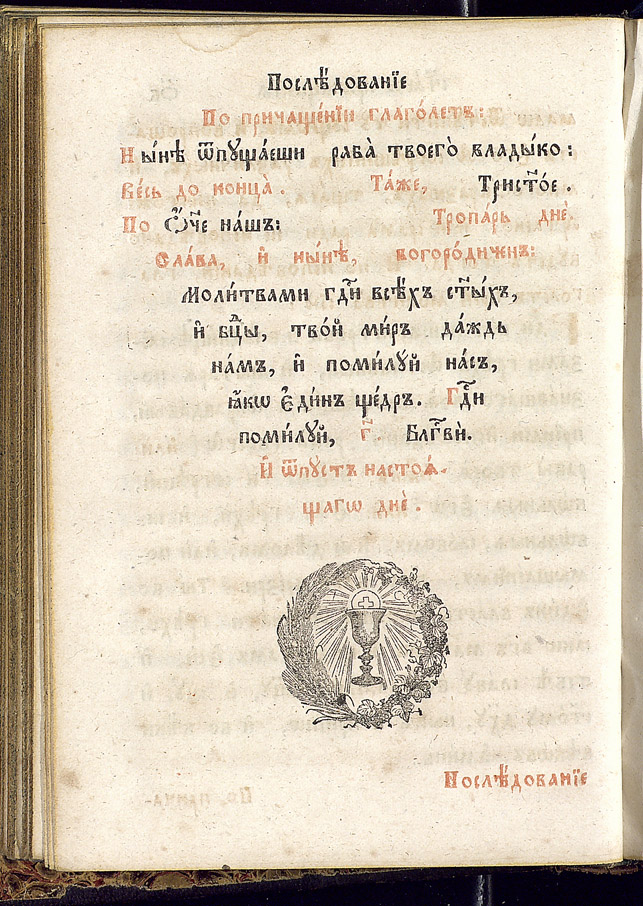 Послѣ́дованїе
По причаще́нїи глаго́летъ:
Нн҃ѣ ѿпꙋща́еши раба̀ твоего̀ влады́ко:
Ве́сь до конца̀. Та́же, Трист҃о́е.
По Ѻ҆́ч҃е на́шъ: Тропа́рь днѐ.
Сла́ва, и҆ ны́нѣ, богоро́диченъ:
Моли́твами гдⷭ҇и всѣ́хъ ст҃ы́хъ,
и҆ бцⷣы, тво́й ми́ръ да́ждь
на́мъ, и҆ поми́лꙋй на́съ,
ꙗ҆́кѡ є҆ди́нъ ще́дръ. Гдⷭ҇и
поми́лꙋй, г҃. Блгⷭ҇вѝ.
И҆ ѿпꙋстъ настоѧ́-
щагѡ днѐ.
Послѣ́дованїе